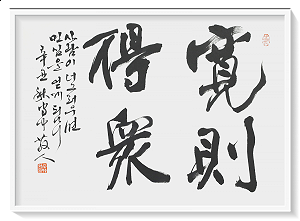 寬則
得衆
사람이 너그러우면
민심을 얻게 되나니
辛丑 秋 人